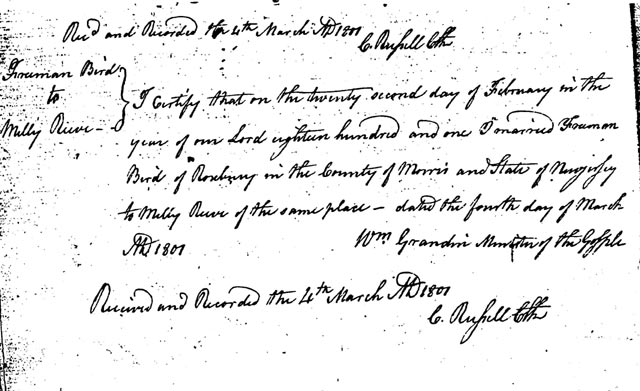 Rec'd and Recorded the 4th March AD 1801
C. Russell Clk
Freeman Bird
to
Milly Reeve -
I Certify that on the twenty second day of February in the
year of our Lord eighteen hundred and one I married Freeman
Bird of Roxbury in the County of Morris and State of Newjersey
to Milly Reeve of the same place - dated the fourth day of March
AD 1801
Wm Grandin Minister of the Gosple
Received and Recorded the 4th March AD 1801
C. Russell Clk